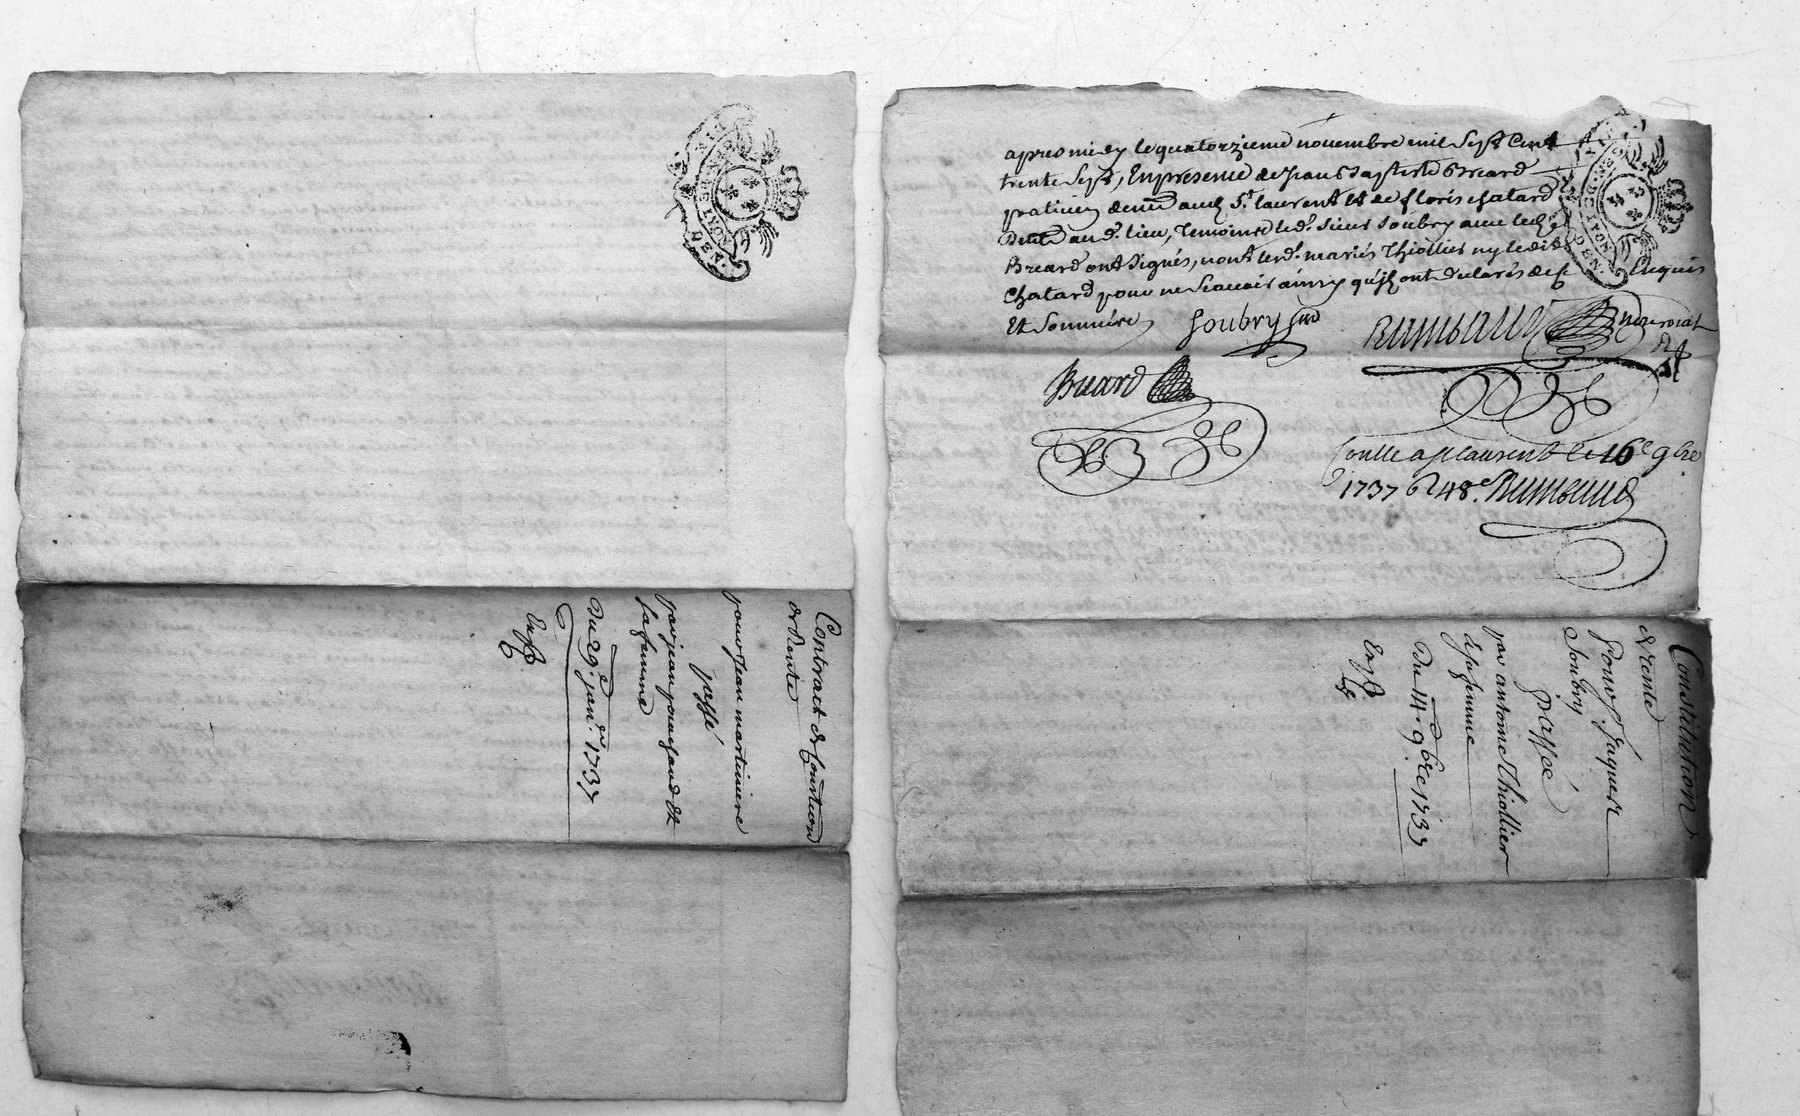 DE LYON
NON SUIET
GEN.
Contract de Constitution
de Rente
pour Jean martiniere
passé
par jean
sa femme
Du 29e janr. 1737
Expé
apres midy le quatorzieme novembre mil Sept Cent
trente Sept, En presence de Jean Baptiste Breard
praticien demt audt St. laurent Et de floris chatard
demt audt. lieu, Temoins led. sieur Soubry avec led.
Breard ont signés, non lesd. mariés Thiollier ny ledit
Chatard pour ne sçavoir ainsy qu'ils ont declarés de ce Enquis
Et Sommés
Soubry
Breard
a St laurent le 16e 9bre
1737 48s.
Constitution
de rente
pour S. Jaques
Soubry
passée
par antoine Thiollier
& sa femme
Du 14e 9bre 1737
Expé